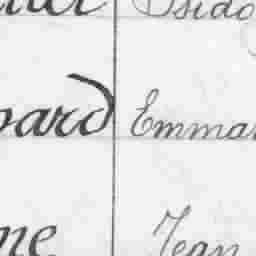 Isido
pard Emma
ne Jean